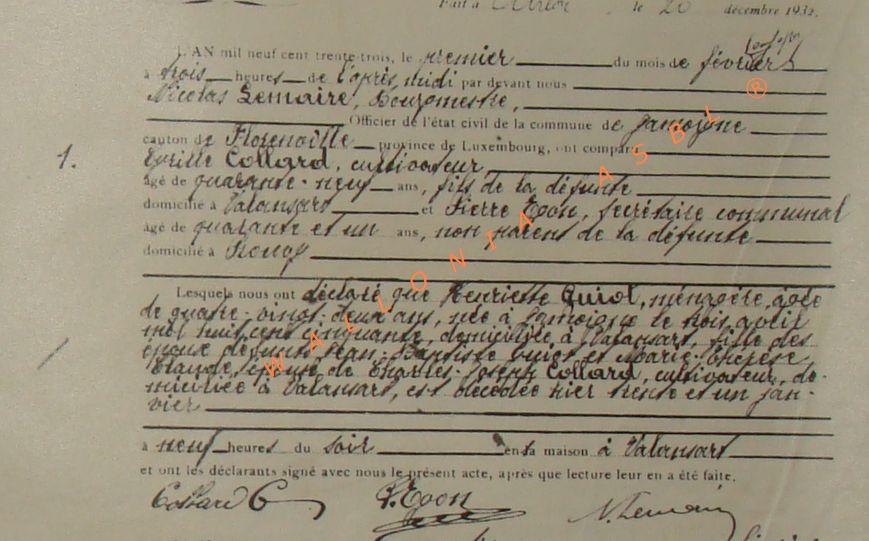 Fait à Arlon le 20 décembre 1932.
L'AN mil neuf cent trente-trois, le premier du mois de février
à trois heures de l'après midi par devant nous
Nicolas Lemaire, Bourgmestre,
Officier de l'état civil de la commune de Jamoigne
canton de Florenville province de Luxembourg, ont comparu
1. Cyrille Collard, cultivateur,
âgé de quarante-neuf ans, fils de la défunte
domicilié à Valansart et Pierre Toon, secrétaire communal
âgé de quarante et un ans, non parent de la défunte
domicilié à
Lesquels nous ont déclaré que Henriette Guiot, ménagère, âgée
de quatre-vingt-deux ans, née à Jamoigne le trois avril
mil huit cent cinquante, domiciliée à Valansart, fille des
époux défunts Jean-Baptiste Guiot et Marie-Thérèse
Claude, épouse de Charles-Joseph Collard, cultivateur, do-
miciliée à Valansart, est décédée hier trente et un jan-
vier
à neuf heures du soir en sa maison à Valansart
et ont les déclarants signé avec nous le présent acte, après que lecture leur en a été faite.
Collard C P. Toon N. Lemaire
WALLONIA ASBL ®